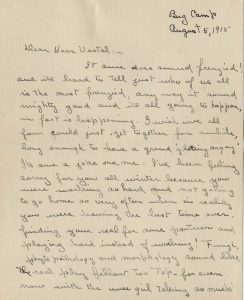 Bug Camp
August 5, 1915
Dear Herr Vestal:—
It sure does sound frenzied!
and its hard to tell just who of us all
is the most frenzied, any way it sounds
mighty good and its all going to happen,
in fact is happening. I wish we all
four could just get together for awhile,
long enough to have a grand
Its sure a joke on me. I've been feeling
sorry for you all winter because you
were working so hard and not getting
to go home so very often when in reality
you were having the best time ever.
Finding your real for sure partners and
playing hard instead of working! Fungi,
phyto pathology and morphology sound like
the real play fellow too Top- for even
now with the wee gul talking as much